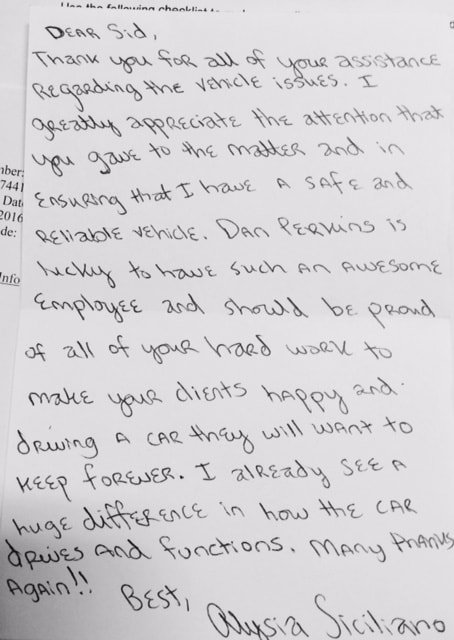 Use the following checklist to
mber:
7441
Dat
2016
de:
Info
Dear Sid,
Thank you for all of your assistance
regarding the vehicle issues. I
greatly appreciate the attention that
you gave to the matter and in
ensuring that I have a safe and
reliable vehicle. Dan Perkins is
lucky to have such an awesome
employee and should be proud
of all of your hard work to
make your clients happy and
driving a car they will want to
keep forever. I already see a
huge difference in how the car
drives and functions. Many thanks
again!!
Best,
Alysia Siciliano